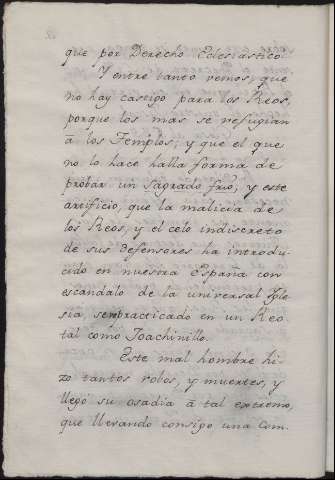 que por Derecho Eclesiastico.
Y entre tanto vemos, que
no hay castigo para los Reos,
porque los mas se refugian
â los Templos; y que el que
no lo hace halla forma de
probar un sagrado frio, y este
artificio, que la malicia de
los Reos, y el celo indiscreto
de sus defensores ha introdu-
cido en nuestra España con
escandalo de la universal Igle
sia, se practicado en un Reo
tal como Joachinillo.
Este mal hombre hi-
zo tantos robos, y muertes, y
llegó su osadia â tal extremo,
que llevando consigo una Com-